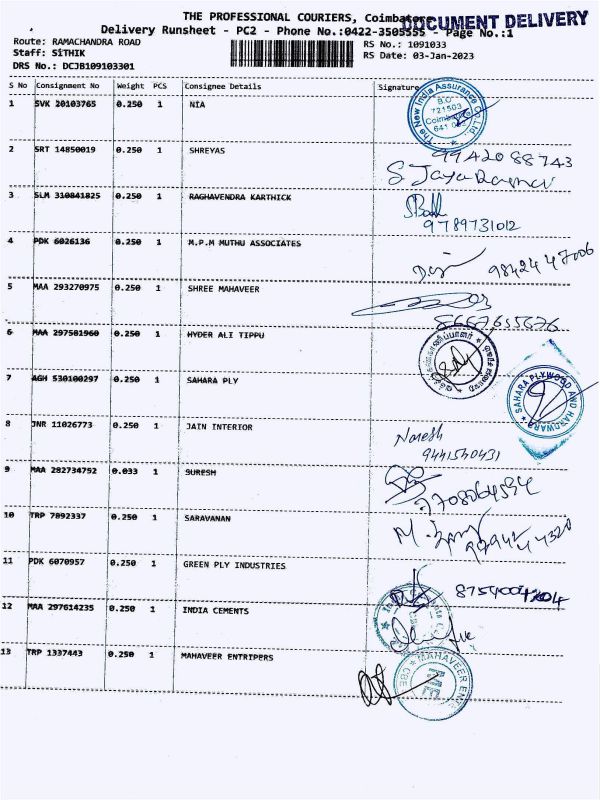 THE PROFESSIONAL COURIERS, Coimbatore
DOCUMENT DELIVERY
Delivery Runsheet - PC2 - Phone No.:0422-3505555 - Page No.:1
Route: RAMACHANDRA ROAD
RS No.: 1091033
Staff: SITHIK
RS Date: 03-Jan-2023
DRS No.: DCJB109103301
S No Consignment No Weight PCS Consignee Details Signature
1 SVK 20103765 0.250 1 NIA
The New India Assurance Co. Ltd.
B.O.
721503
Coimbatore
641
2 SRT 14850019 0.250 1 SHREYAS
9942088743
3 SLM 310841825 0.250 1 RAGHAVENDRA KARTHICK
9789731012
4 PDK 6026136 0.250 1 M.P.M MUTHU ASSOCIATES
9842447006
5 MAA 293270975 0.250 1 SHREE MAHAVEER
6 MAA 297581960 0.250 1 HYDER ALI TIPPU
7 AGH 530100297 0.250 1 SAHARA PLY
SAHARA PLYWOOD AND HARDWARE
8 JNR 11026773 0.250 1 JAIN INTERIOR
Naresh
9441540431
9 MAA 282734752 0.033 1 SURESH
10 TRP 7892337 0.250 1 SARAVANAN
11 PDK 6070957 0.250 1 GREEN PLY INDUSTRIES
12 MAA 297614235 0.250 1 INDIA CEMENTS
13 TRP 1337443 0.250 1 MAHAVEER ENTRIPERS
MAHAVEER
CBE